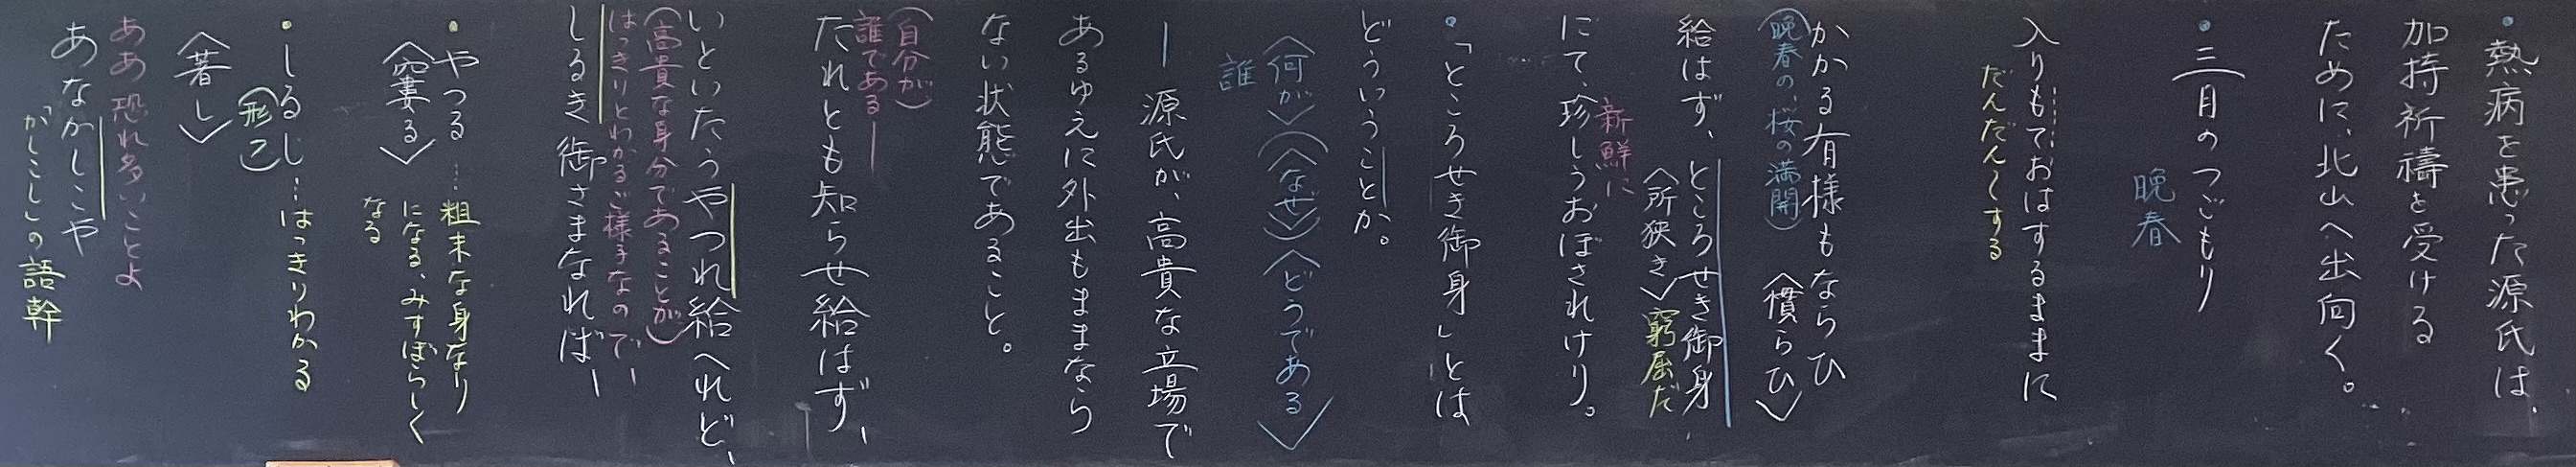 ・熱病を患った源氏は、
加持祈禱を受ける
ために、北山へ出向く。
・三月のつごもり
晩春
入りもておはするままに
だんだん〜する
かかる有様もならひ
〈慣らひ〉
(晩春の、桜の満開)
給はず、ところせき御身
〈所狭き〉窮屈だ
新鮮に
にて、珍しうおぼされけり。
・「ところせき御身」とは
どういうことか。
〈何が〉(〈なぜ〉)〈どうである〉
誰
―源氏が、高貴な立場で
あるゆえに外出もままなら
ない状態であること。
(自分が)
誰である
たれとも知らせ給はず、
いといたうやつれ給へれど、
(高貴な身分であることが)
はっきりとわかるご様子なので、
しるき御さまなれば、
・やつる…粗末な身なり
になる、みすぼらしく
なる
〈窶る〉
・しるし…はっきりわかる
(形ク)
〈著し〉
ああ恐れ多いことよ
あなかしこや
「かしこし」の語幹